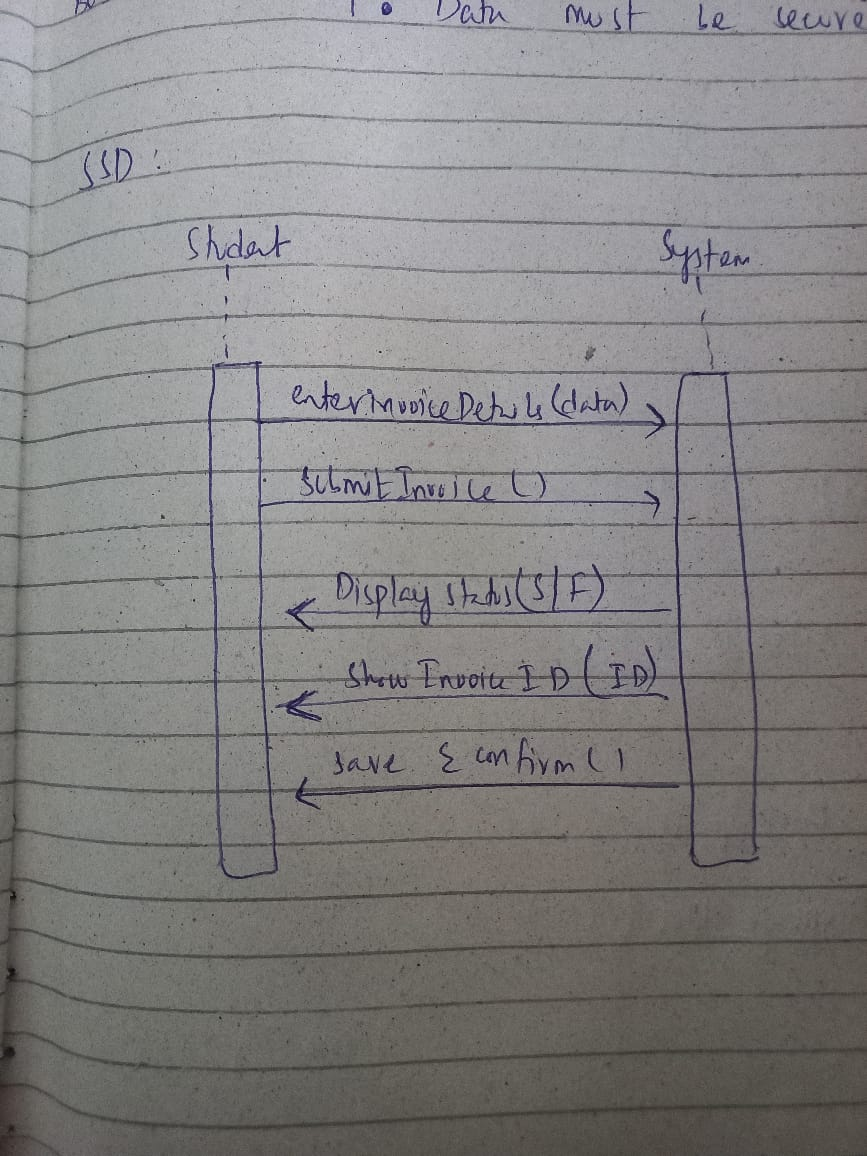 • Data must be secure
SSD :
Student
System
enterinvoiceDetails (data)
SubmitInvoice ()
Display status (S/F)
Show Invoice ID (ID)
save & confirm ()